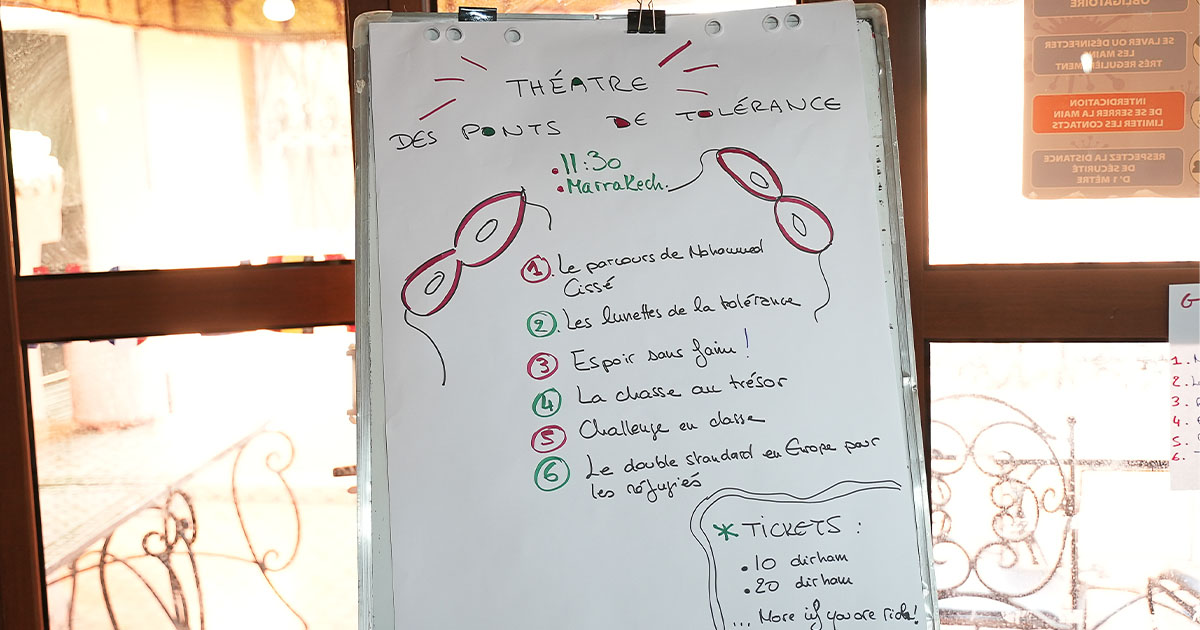 THÉATRE
DES PONTS DE TOLÉRANCE
.11:30
.Marrakech.
1. Le parcours de Mohammed
Cissé
2. Les lunettes de la tolérance
3 Espoir sans faim!
4 La chasse au trésor
5 Challenge en classe
6 Le double standard en Europe pour
les réfugiés
* TICKETS :
.10 dirham
.20 dirham
... More if you are rich!
OBLIGATOIRE
SE LAVER OU DÉSINFECTER
LES MAINS
TRÈS REGULIÈREMENT
INTERDICATION
DE SE SERRER LA MAIN
LIMITER LES CONTACTS
RESPECTEZ LA DISTANCE
DE SÉCURITÉ
D'1 MÈTRE
G
1.
2.
3.
4.
5.
6.